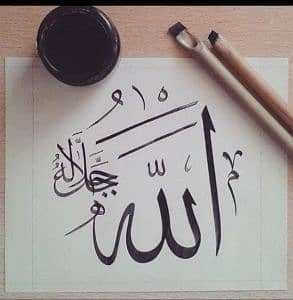 الله
جل جلاله